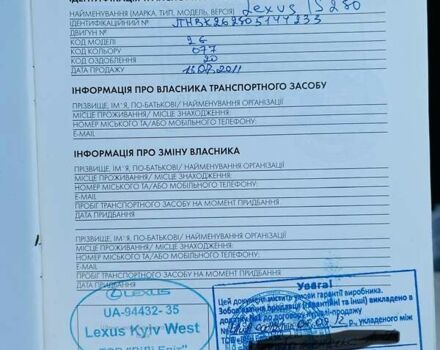 НАЙМЕНУВАННЯ (МАРКА, ТИП, МОДЕЛЬ, ВЕРСІЯ) Lexus IS 250
ІДЕНТИФІКАЦІЙНИЙ №
ДВИГУН №
КОД МОДЕЛІ
КОД КОЛЬОРУ 077
КОД ОЗДОБЛЕННЯ 20
ДАТА ПРОДАЖУ
ІНФОРМАЦІЯ ПРО ВЛАСНИКА ТРАНСПОРТНОГО ЗАСОБУ
ПРІЗВИЩЕ, ІМ'Я, ПО-БАТЬКОВІ/ НАЙМЕНУВАННЯ ОРГАНІЗАЦІЇ
МІСЦЕ ПРОЖИВАННЯ/ МІСЦЕ ЗНАХОДЖЕННЯ:
НОМЕР МІСЬКОГО ТА/АБО МОБІЛЬНОГО ТЕЛЕФОНУ:
E-MAIL
ІНФОРМАЦІЯ ПРО ЗМІНУ ВЛАСНИКА
ПРІЗВИЩЕ, ІМ'Я, ПО-БАТЬКОВІ/ НАЙМЕНУВАННЯ ОРГАНІЗАЦІЇ
МІСЦЕ ПРОЖИВАННЯ/ МІСЦЕ ЗНАХОДЖЕННЯ:
НОМЕР МІСЬКОГО ТА/АБО МОБІЛЬНОГО ТЕЛЕФОНУ:
E-MAIL
ПРОБІГ ТРАНСПОРТНОГО ЗАСОБУ НА МОМЕНТ ПРИДБАННЯ
ДАТА ПРИДБАННЯ
ПРІЗВИЩЕ, ІМ'Я, ПО-БАТЬКОВІ/ НАЙМЕНУВАННЯ ОРГАНІЗАЦІЇ
МІСЦЕ ПРОЖИВАННЯ/ МІСЦЕ ЗНАХОДЖЕННЯ:
НОМЕР МІСЬКОГО ТА/АБО МОБІЛЬНОГО ТЕЛЕФОНУ:
E-MAIL
ПРОБІГ ТРАНСПОРТНОГО ЗАСОБУ НА МОМЕНТ ПРИДБАННЯ
ДАТА ПРИДБАННЯ
LEXUS
UA-94432-35
Lexus Kyiv West
Увага!
Цей документ містить умови гарантії виробника.
Зобов'язання продавця (гарантійні та інші) викладено в
додатку №3 до договору купівлі-продажу
р., укладеного між